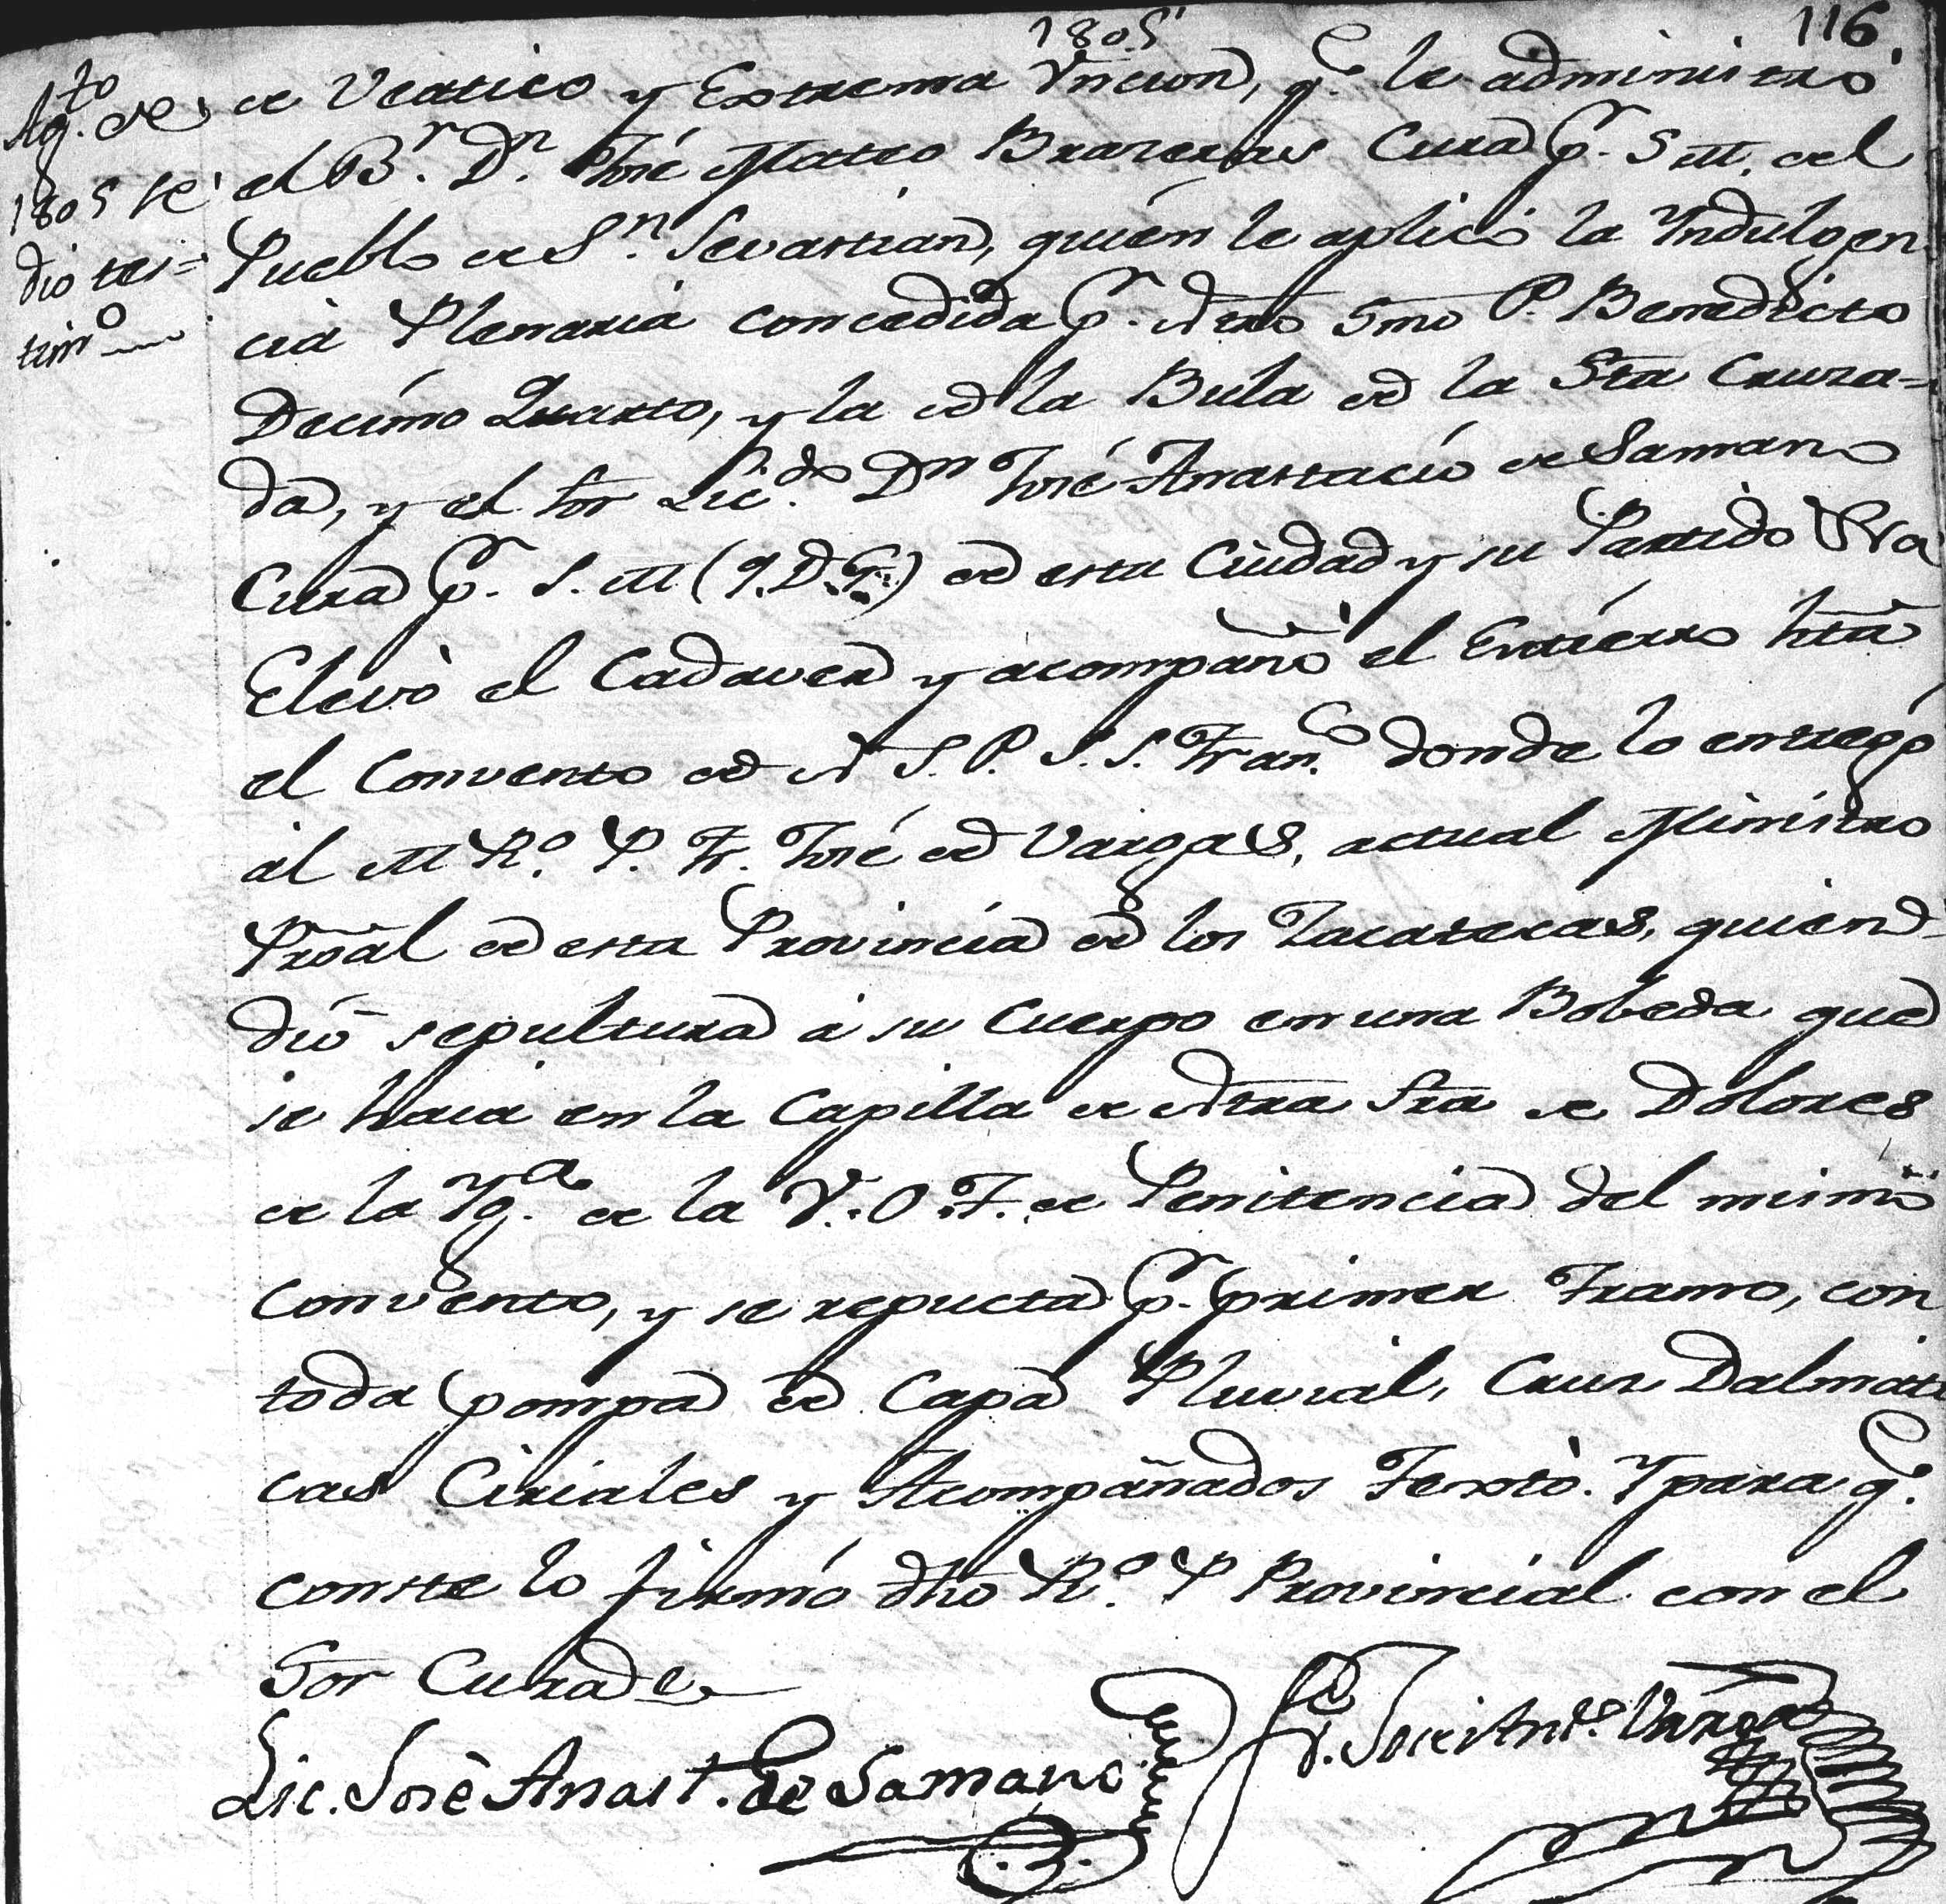 1805
116.
Ag.to de
1805 se
dio tes=
tim.o
de Veatico y Extrema Vncion, q.e le administró
el B.r D.n José Mateo Braceras Cura p.r S M. del
Pueblo de S.n Sevastian, quién le aplicó la Yndulgen
cia Plenaria concedida p.r Ntro Smo P. Benedicto
Decímo Quarto, y la de la Bula de la Sta Cruza=
da, y el Sor Lic.do Dn José Anastacio de Samano
Cura p.r S. M (q.D.G.) de esta Ciudad y su Partido
Elevò el Cadaver y acompañò el Entiérro hta
el Convento de N S. P. S. S. Fran.co donde lo entregó
al M R.o P. Fr. José de Vargas, actual Minístro
Proãl de esta Provincia de los Zacatecas, quien
dió sepultura à su Cuerpo en una Bobeda que
se hacia en la Capilla de Ntra Sra de Dolores
de la Yg.a de la V. O T. de Penitencia del mismo
Convento, y se reputa p.r primer Tramo, con
toda pompa de Capa Pluvial, Cruz Dalmati
cas Ciriales y Acompañados Textò. Y para q.e
conste lo firmó dho R.o P Provincial con el
Sor Cura de
Lic. José Anast. de Samano
Fr. José Ant.o Vargas